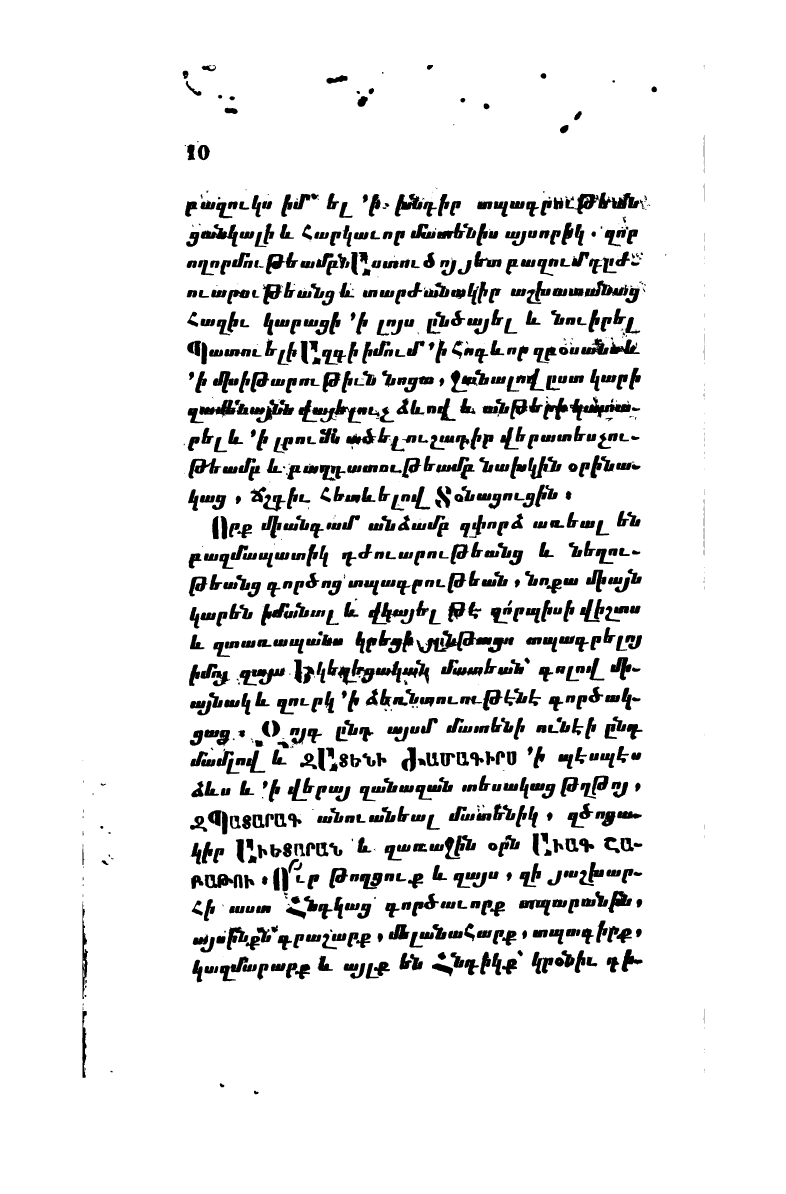 10
բազուկս իմ՝ ել ՚ի խնդիր տպագրութեան
ցանկալի և հարկաւոր մատենիս այսորիկ. զոր
ողորմութեամբն Աստուծոյ յետ բազում դըժ-
ուարութեանց և տարժանակիր աշխատանաց
հազիւ կարացի ՚ի լոյս ընծայել և նուիրել
Պատուելի Ազգի իմում ՚ի հոգևոր զբօսանս և
՚ի մսիթարութիւն նոցա, ջանալով ըստ կարի
զամենայնն վայելուչ ձևով և անթերի կատա-
րել և ՚ի լրումն ածել ուշադիր վերատեսչու-
թեամբ և բաղդատութեամբ նախկին օրինա-
կաց, ճշգիւ հետևելով Տօնացուցին։
Որք միանգամ անձամբ զփորձ առեալ են
բազմապատիկ դժուարութեանց և նեղու-
թեանց գործոց տպագրութեան, նոքա միայն
կարեն իմանալ և վկայել թէ զո՛րպիսի վիշտս
և զտառապանս կրեցի յընթացս տպագրելոյ
իմոյ զայս Եկեղեցական մատեան՝ գոլով մի-
այնակ և զուրկ ՚ի ձեռնտուութէնէ գործակ-
ցաց։ Զոյգ ընդ այսմ մատենի ունէի ընդ
մամլով և ԶԱՏԵՆԻ ԺԱՄԱԳԻՐՍ ՚ի պէսպէս
ձևս և ՚ի վերայ զանազան տեսակաց թղթոյ,
ԶՊԱՏԱՐԱԳ անուանեալ մատենիկ, զծոցա-
կիր ԱՒԵՏԱՐԱՆ և զառաջին օրն ԱՒԱԳ ՇԱ-
ԲԱԹՈՒ։ Ո՛ւր թողցուք և զայս, զի յաշխար-
հի աստ Հնդկաց գործաւորք տպարանին,
այսինքն՝ գրաշարք, մելանահարք, տպագիրք,
կազմարարք և այլք են Հնդիկք՝ կրօնիւ դի-